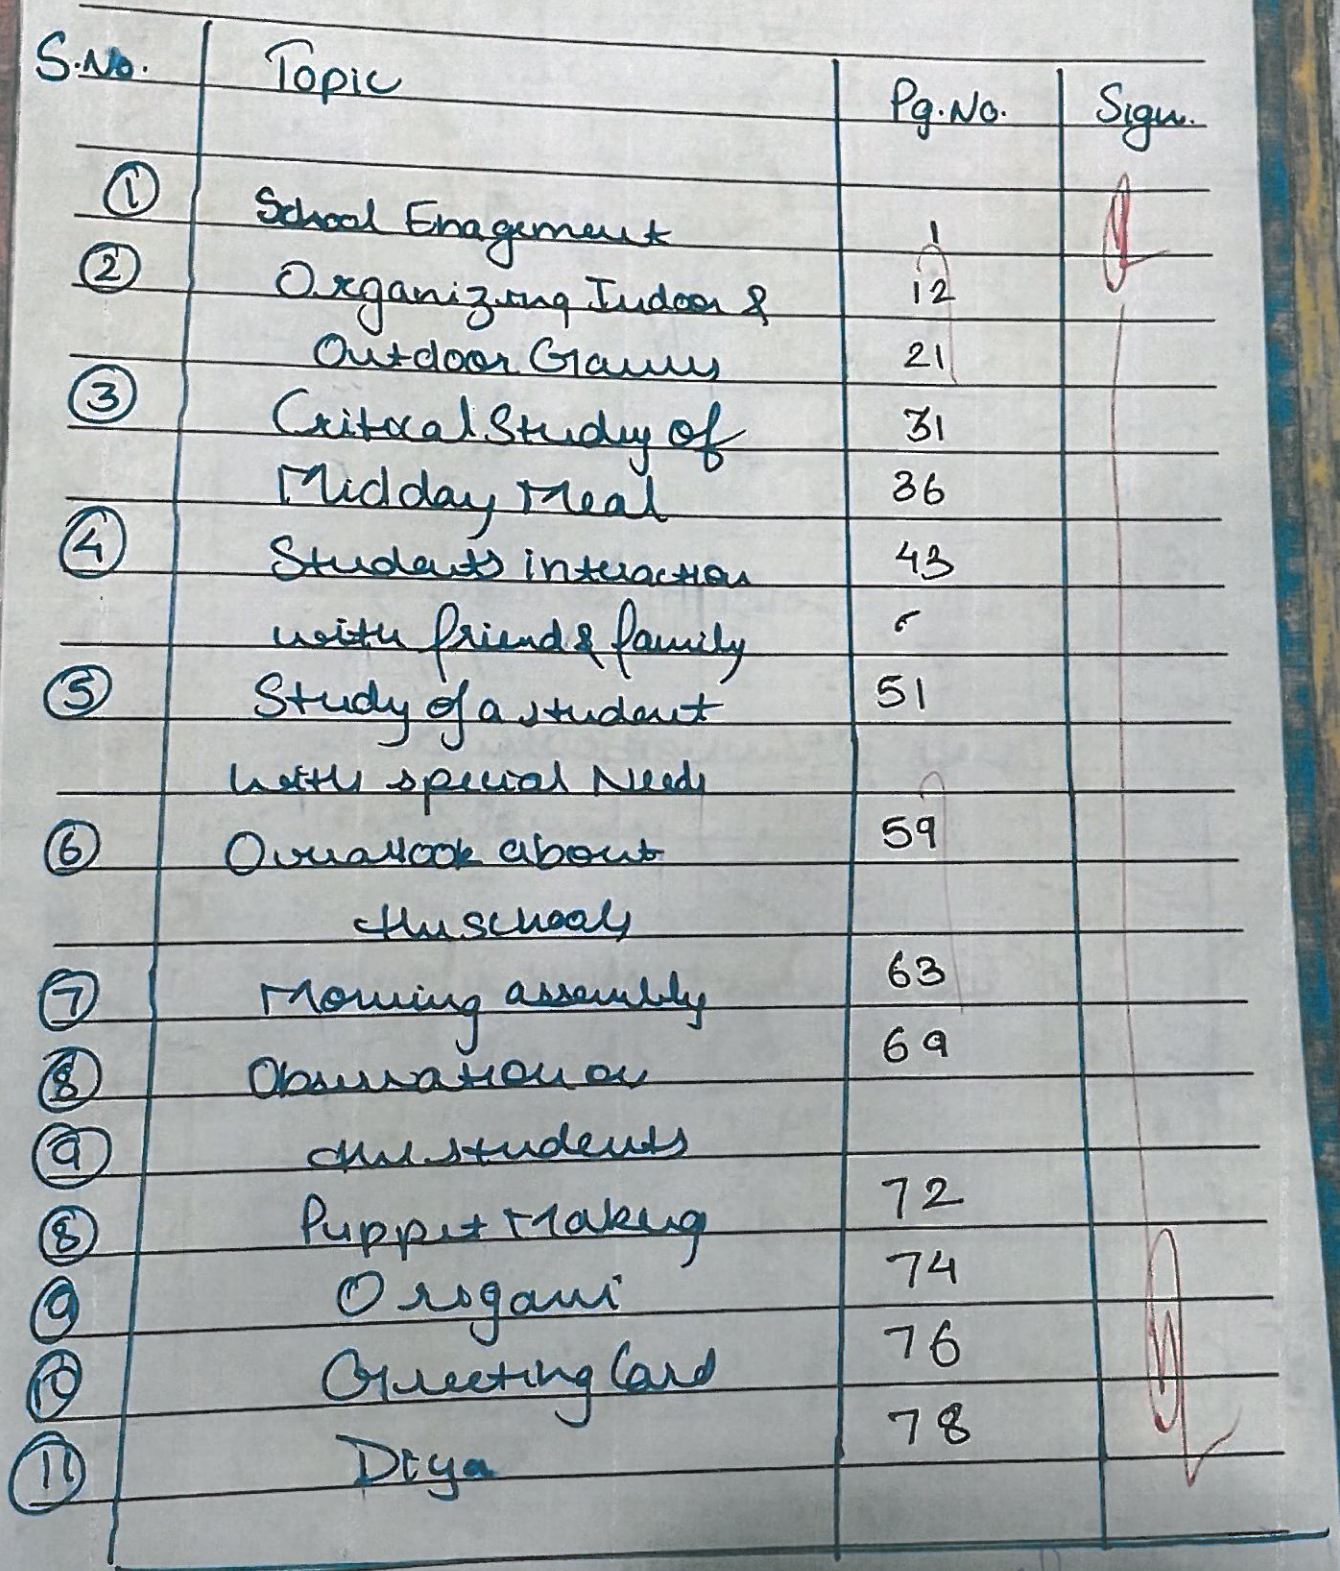 S.No. Topic Pg.No. Sign.
1 School Enagement 1
2 Organizing Indoor & 12
Outdoor Games 21
3 Critical Study of 31
Midday Meal 36
4 Students interaction 43
with friend & family
5 Study of a student 51
with special Needs
6 Overallook about 59
the schools
7 Morning assembly 63
8 Observation on 69
9 the students
8 Puppet Making 72
9 Origami 74
10 Greeting Card 76
11 Diya 78